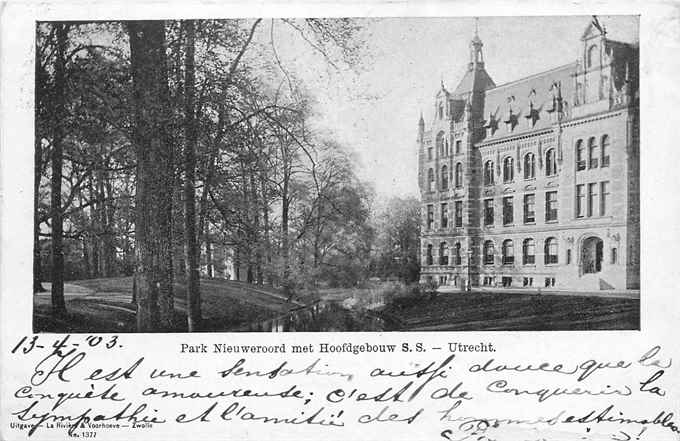 13-4-'03.
Park Nieuweroord met Hoofdgebouw S.S. — Utrecht.
Il est une sensation, aussi douce que la
conquête amoureuse; c'est de conquérir la
sympathie et l'amitié des hommes estimables
Uitgave — La Rivière & Voorhoeve — Zwolle
No. 1377